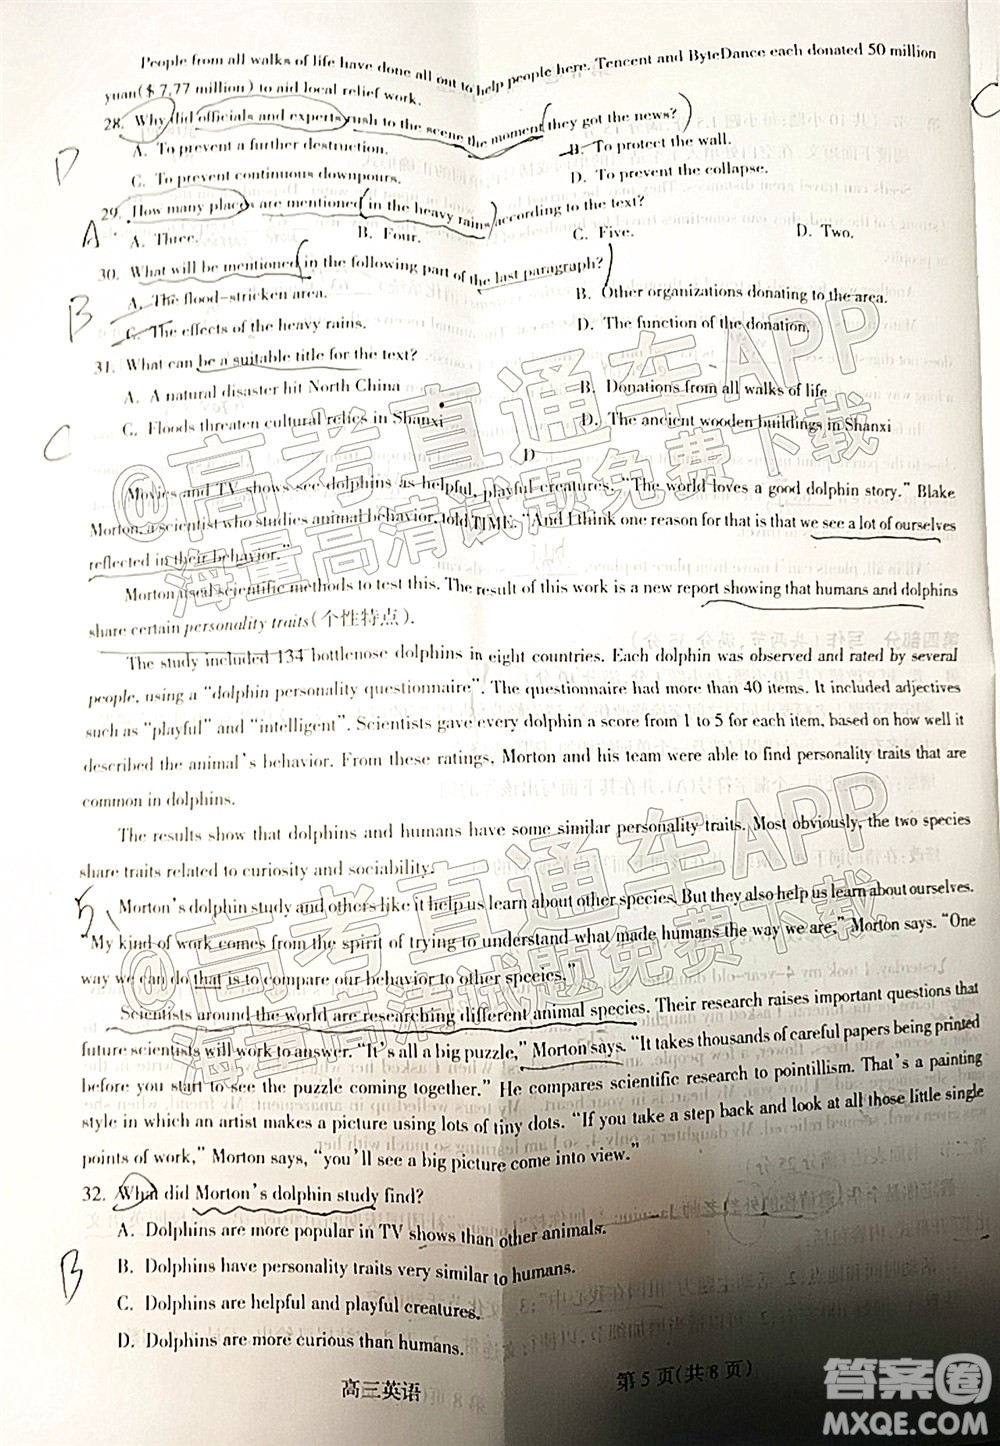 People from all walks of life have done all out to help people here. Tencent and ByteDance each donated 50 million
yuan($ 7.77 million) to aid local relief work.
28. Why did officials and experts rush to the scene the moment they got the news?
A. To prevent a further destruction.
B. To protect the wall.
C. To prevent continuous downpours.
D. To prevent the collapse.
D
29. How many places are mentioned in the heavy rains according to the text?
A. Three.
B. Four.
C. Five.
D. Two.
A
30. What will be mentioned in the following part of the last paragraph?
A. The flood-stricken area.
B. Other organizations donating to the area.
C. The effects of the heavy rains.
D. The function of the donation.
B
31. What can be a suitable title for the text?
A. A natural disaster hit North China
B. Donations from all walks of life
C. Floods threaten cultural relics in Shanxi
D. The ancient wooden buildings in Shanxi
C
D
Movies and TV shows see dolphins as helpful, playful creatures. "The world loves a good dolphin story." Blake
Morton, a scientist who studies animal behavior, told TIME. "And I think one reason for that is that we see a lot of ourselves
reflected in their behavior."
Morton used scientific methods to test this. The result of this work is a new report showing that humans and dolphins
share certain personality traits(个性特点).
The study included 134 bottlenose dolphins in eight countries. Each dolphin was observed and rated by several
people, using a "dolphin personality questionnaire". The questionnaire had more than 40 items. It included adjectives
such as "playful" and "intelligent". Scientists gave every dolphin a score from 1 to 5 for each item, based on how well it
described the animal's behavior. From these ratings, Morton and his team were able to find personality traits that are
common in dolphins.
The results show that dolphins and humans have some similar personality traits. Most obviously, the two species
share traits related to curiosity and sociability.
Morton's dolphin study and others like it help us learn about other species. But they also help us learn about ourselves.
"My kind of work comes from the spirit of trying to understand what made humans the way we are," Morton says. "One
way we can do that is to compare our behavior to other species."
Scientists around the world are researching different animal species. Their research raises important questions that
future scientists will work to answer. "It's all a big puzzle," Morton says. "It takes thousands of careful papers being printed
before you start to see the puzzle coming together." He compares scientific research to pointillism. That's a painting
style in which an artist makes a picture using lots of tiny dots. "If you take a step back and look at all those little single
points of work," Morton says, "you'll see a big picture come into view."
32. What did Morton's dolphin study find?
A. Dolphins are more popular in TV shows than other animals.
B. Dolphins have personality traits very similar to humans.
C. Dolphins are helpful and playful creatures.
D. Dolphins are more curious than humans.
B
高三英语
第5页(共8页)
@高考直通车APP
海量高清试题免费下载
@高考直通车APP
海量高清试题免费下载
答案圈
MXQE.COM